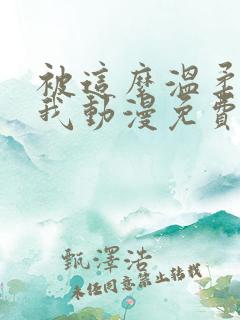 被這麼溫柔
我動漫免費
甄澤浩
未經同意禁止轉載